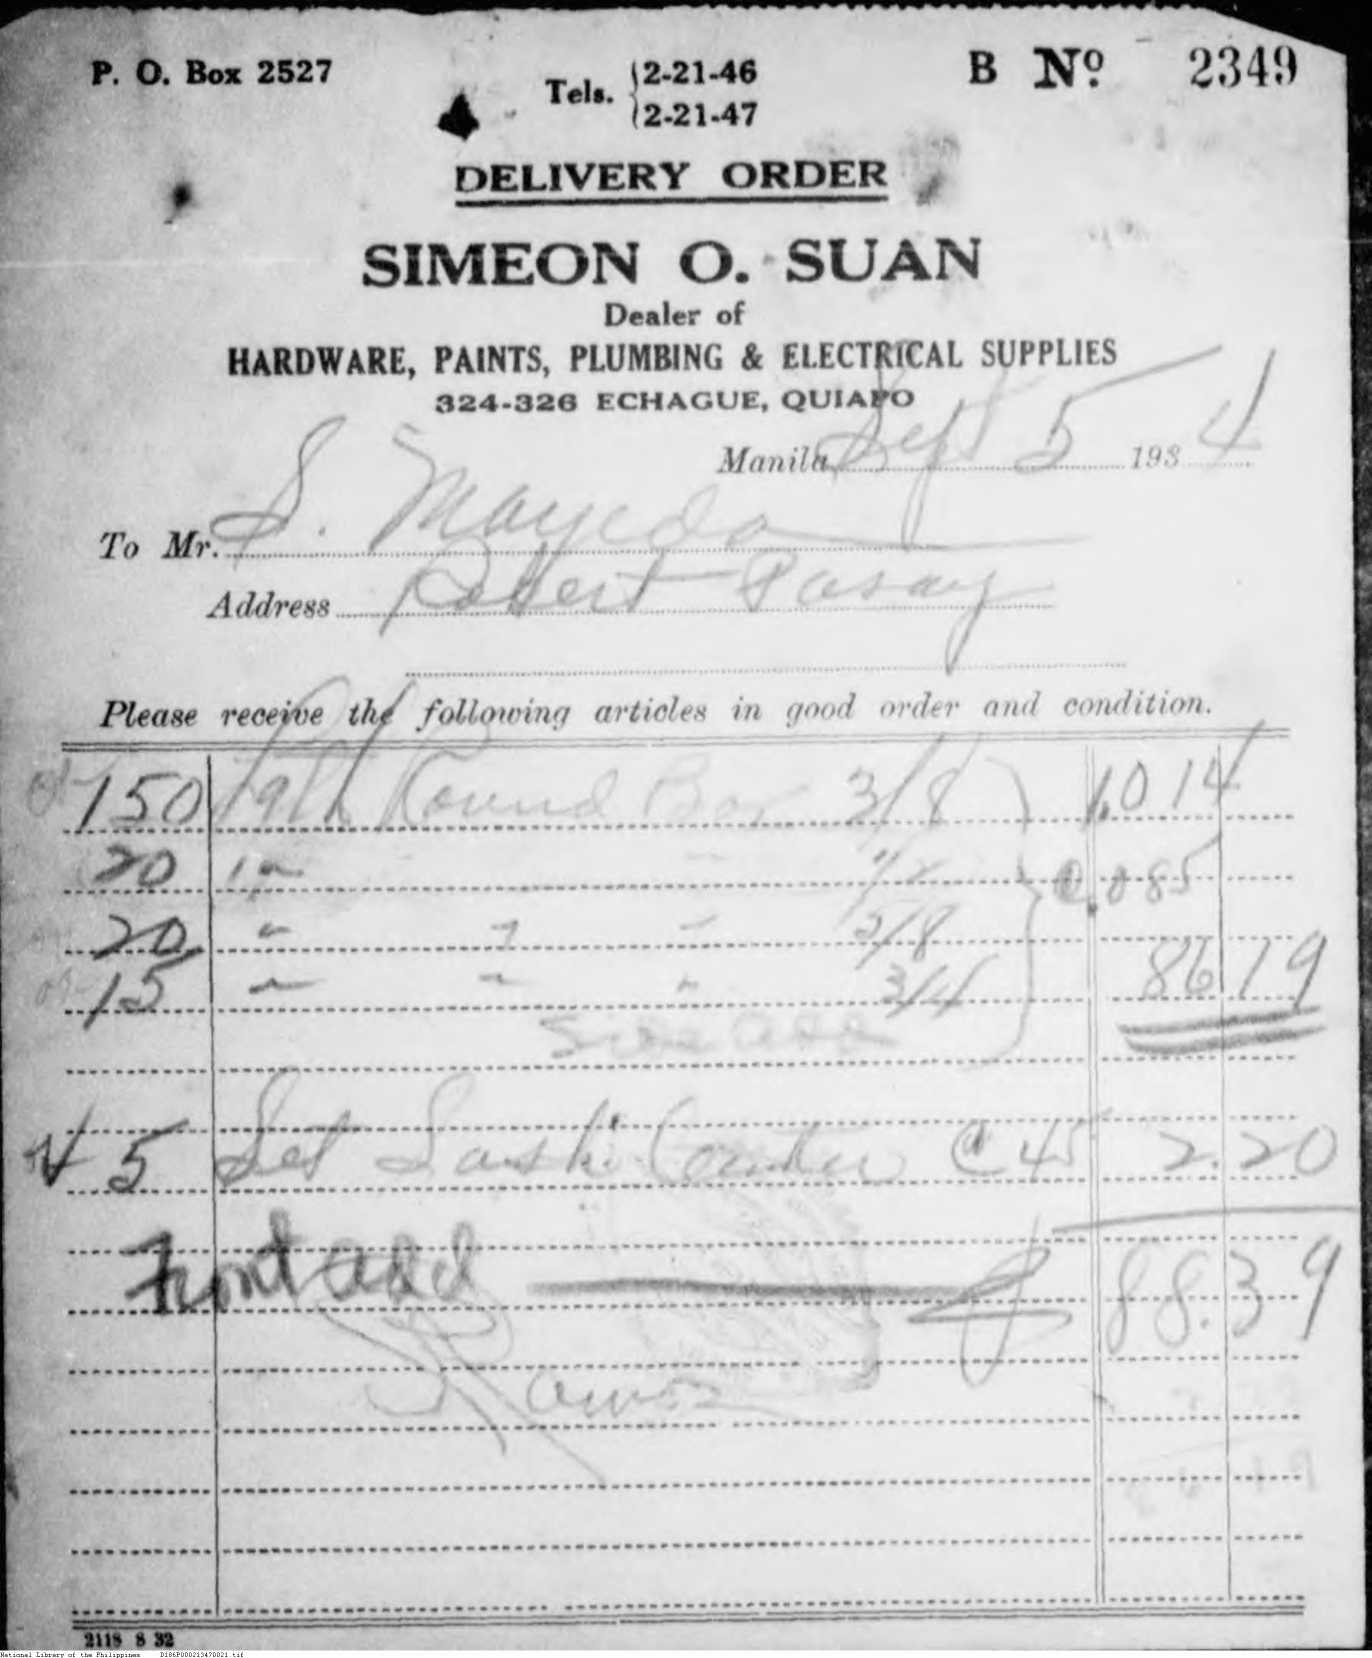 P. O. Box 2527
Tels. 2-21-46
2-21-47
B Nº 2349
DELIVERY ORDER
SIMEON O. SUAN
Dealer of
HARDWARE, PAINTS, PLUMBING & ELECTRICAL SUPPLIES
324-326 ECHAGUE, QUIAPO
Manila Sept 5 1934
To Mr. S. Mayeda
Address Robert Pasay
Please receive the following articles in good order and condition.
150 Round Bar 3/8 1,014
20 " " 1/2 @.085
20 " " " 5/8
15 " " " 3/4 86 19
Side add
5 Set Sash Center @ 45 2.20
Front add 88.39
2118 8 32
National Library of the Philippines D186P000213470021.tif